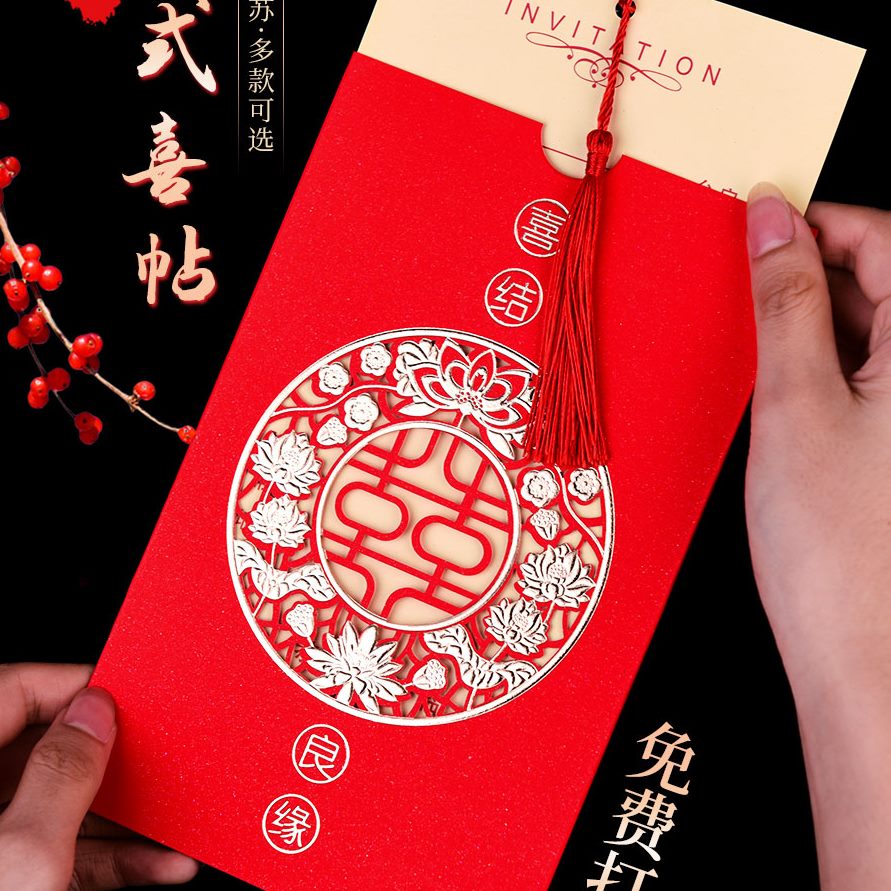 式喜帖
苏·多款可选
INVITATION
喜结
良缘
囍
免费打